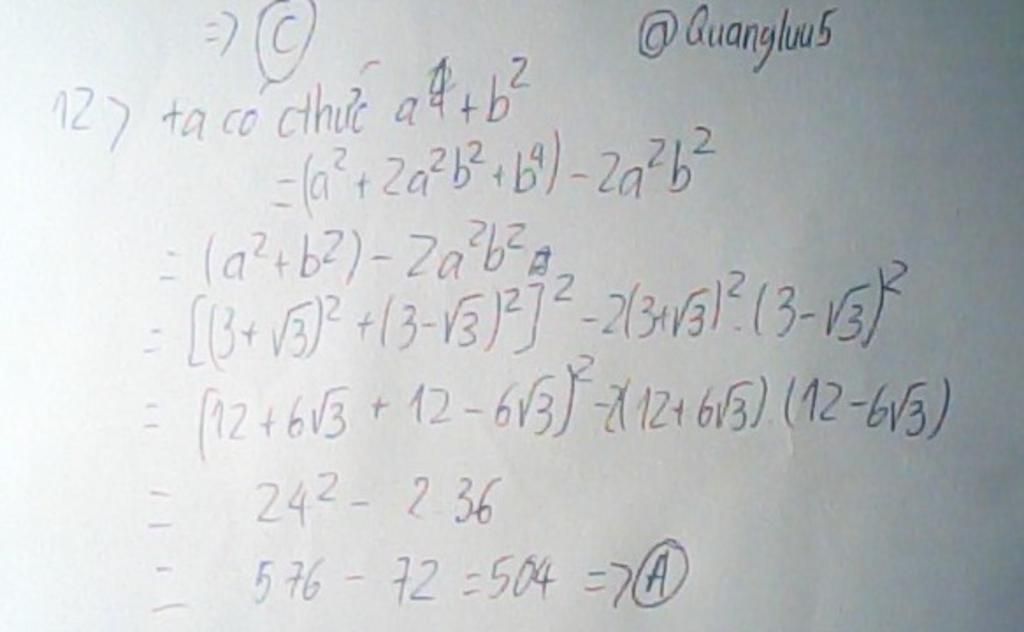 => Ⓒ @Quangluu5
12> ta có cthức a⁴ + b²
= (a² + 2a²b² + b⁴) - 2a²b²
= (a² + b²) - 2a²b²
= [(3 + √3)² + (3 - √3)²]² - 2(3+√3)² . (3 - √3)²
= (12 + 6√3 + 12 - 6√3)² - 2(12 + 6√3) . (12 - 6√3)
= 24² - 2.36
= 576 - 72 = 504 => Ⓐ